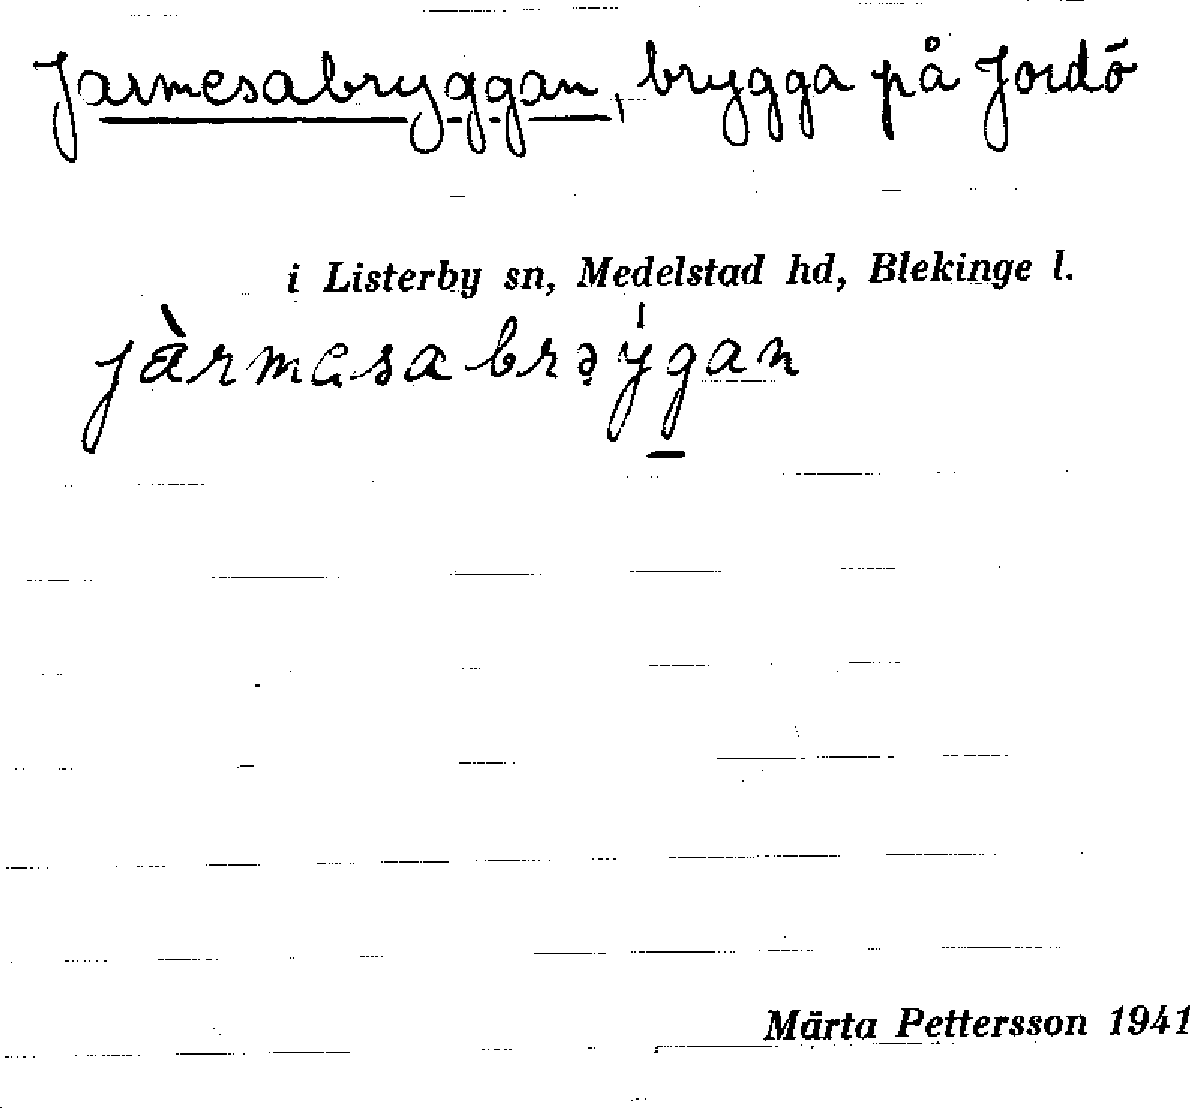 Jarmesabryggan, brygga på Jordö
i Listerby sn, Medelstad hd, Blekinge l.
jàrmesabrəýgan
Märta Pettersson 1941